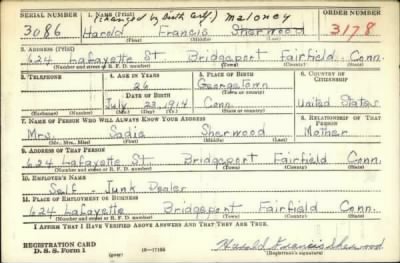 SERIAL NUMBER 1. NAME (Print) (Changed by Birth Cert) Maloney ORDER NUMBER
3086 Harold Francis Sherwood 3178
(First) (Middle) (Last)
2. ADDRESS (Print)
624 Lafayette St Bridgeport Fairfield Conn.
(Number and street or R. F. D. number) (Town) (County) (State)
3. TELEPHONE 4. AGE IN YEARS 5. PLACE OF BIRTH 6. COUNTRY OF CITIZENSHIP
26 Georgetown
(Town or county)
DATE OF BIRTH
July 23, 1914 Conn. United States
(Exchange) (Number) (Mo.) (Day) (Yr.) (State or country)
7. NAME OF PERSON WHO WILL ALWAYS KNOW YOUR ADDRESS 8. RELATIONSHIP OF THAT PERSON
Mrs. Sadia Sherwood Mother
(Mr., Mrs., Miss) (First) (Middle) (Last)
9. ADDRESS OF THAT PERSON
624 Lafayette St Bridgeport Fairfield Conn.
(Number and street or R. F. D. number) (Town) (County) (State)
10. EMPLOYER'S NAME
Self - Junk Dealer
11. PLACE OF EMPLOYMENT OR BUSINESS
624 Lafayette Bridgeport Fairfield Conn.
(Number and street or R. F. D. number) (Town) (County) (State)
I AFFIRM THAT I HAVE VERIFIED ABOVE ANSWERS AND THAT THEY ARE TRUE.
REGISTRATION CARD
D. S. S. Form 1 (over) Harold Francis Sherwood
(Registrant's signature)